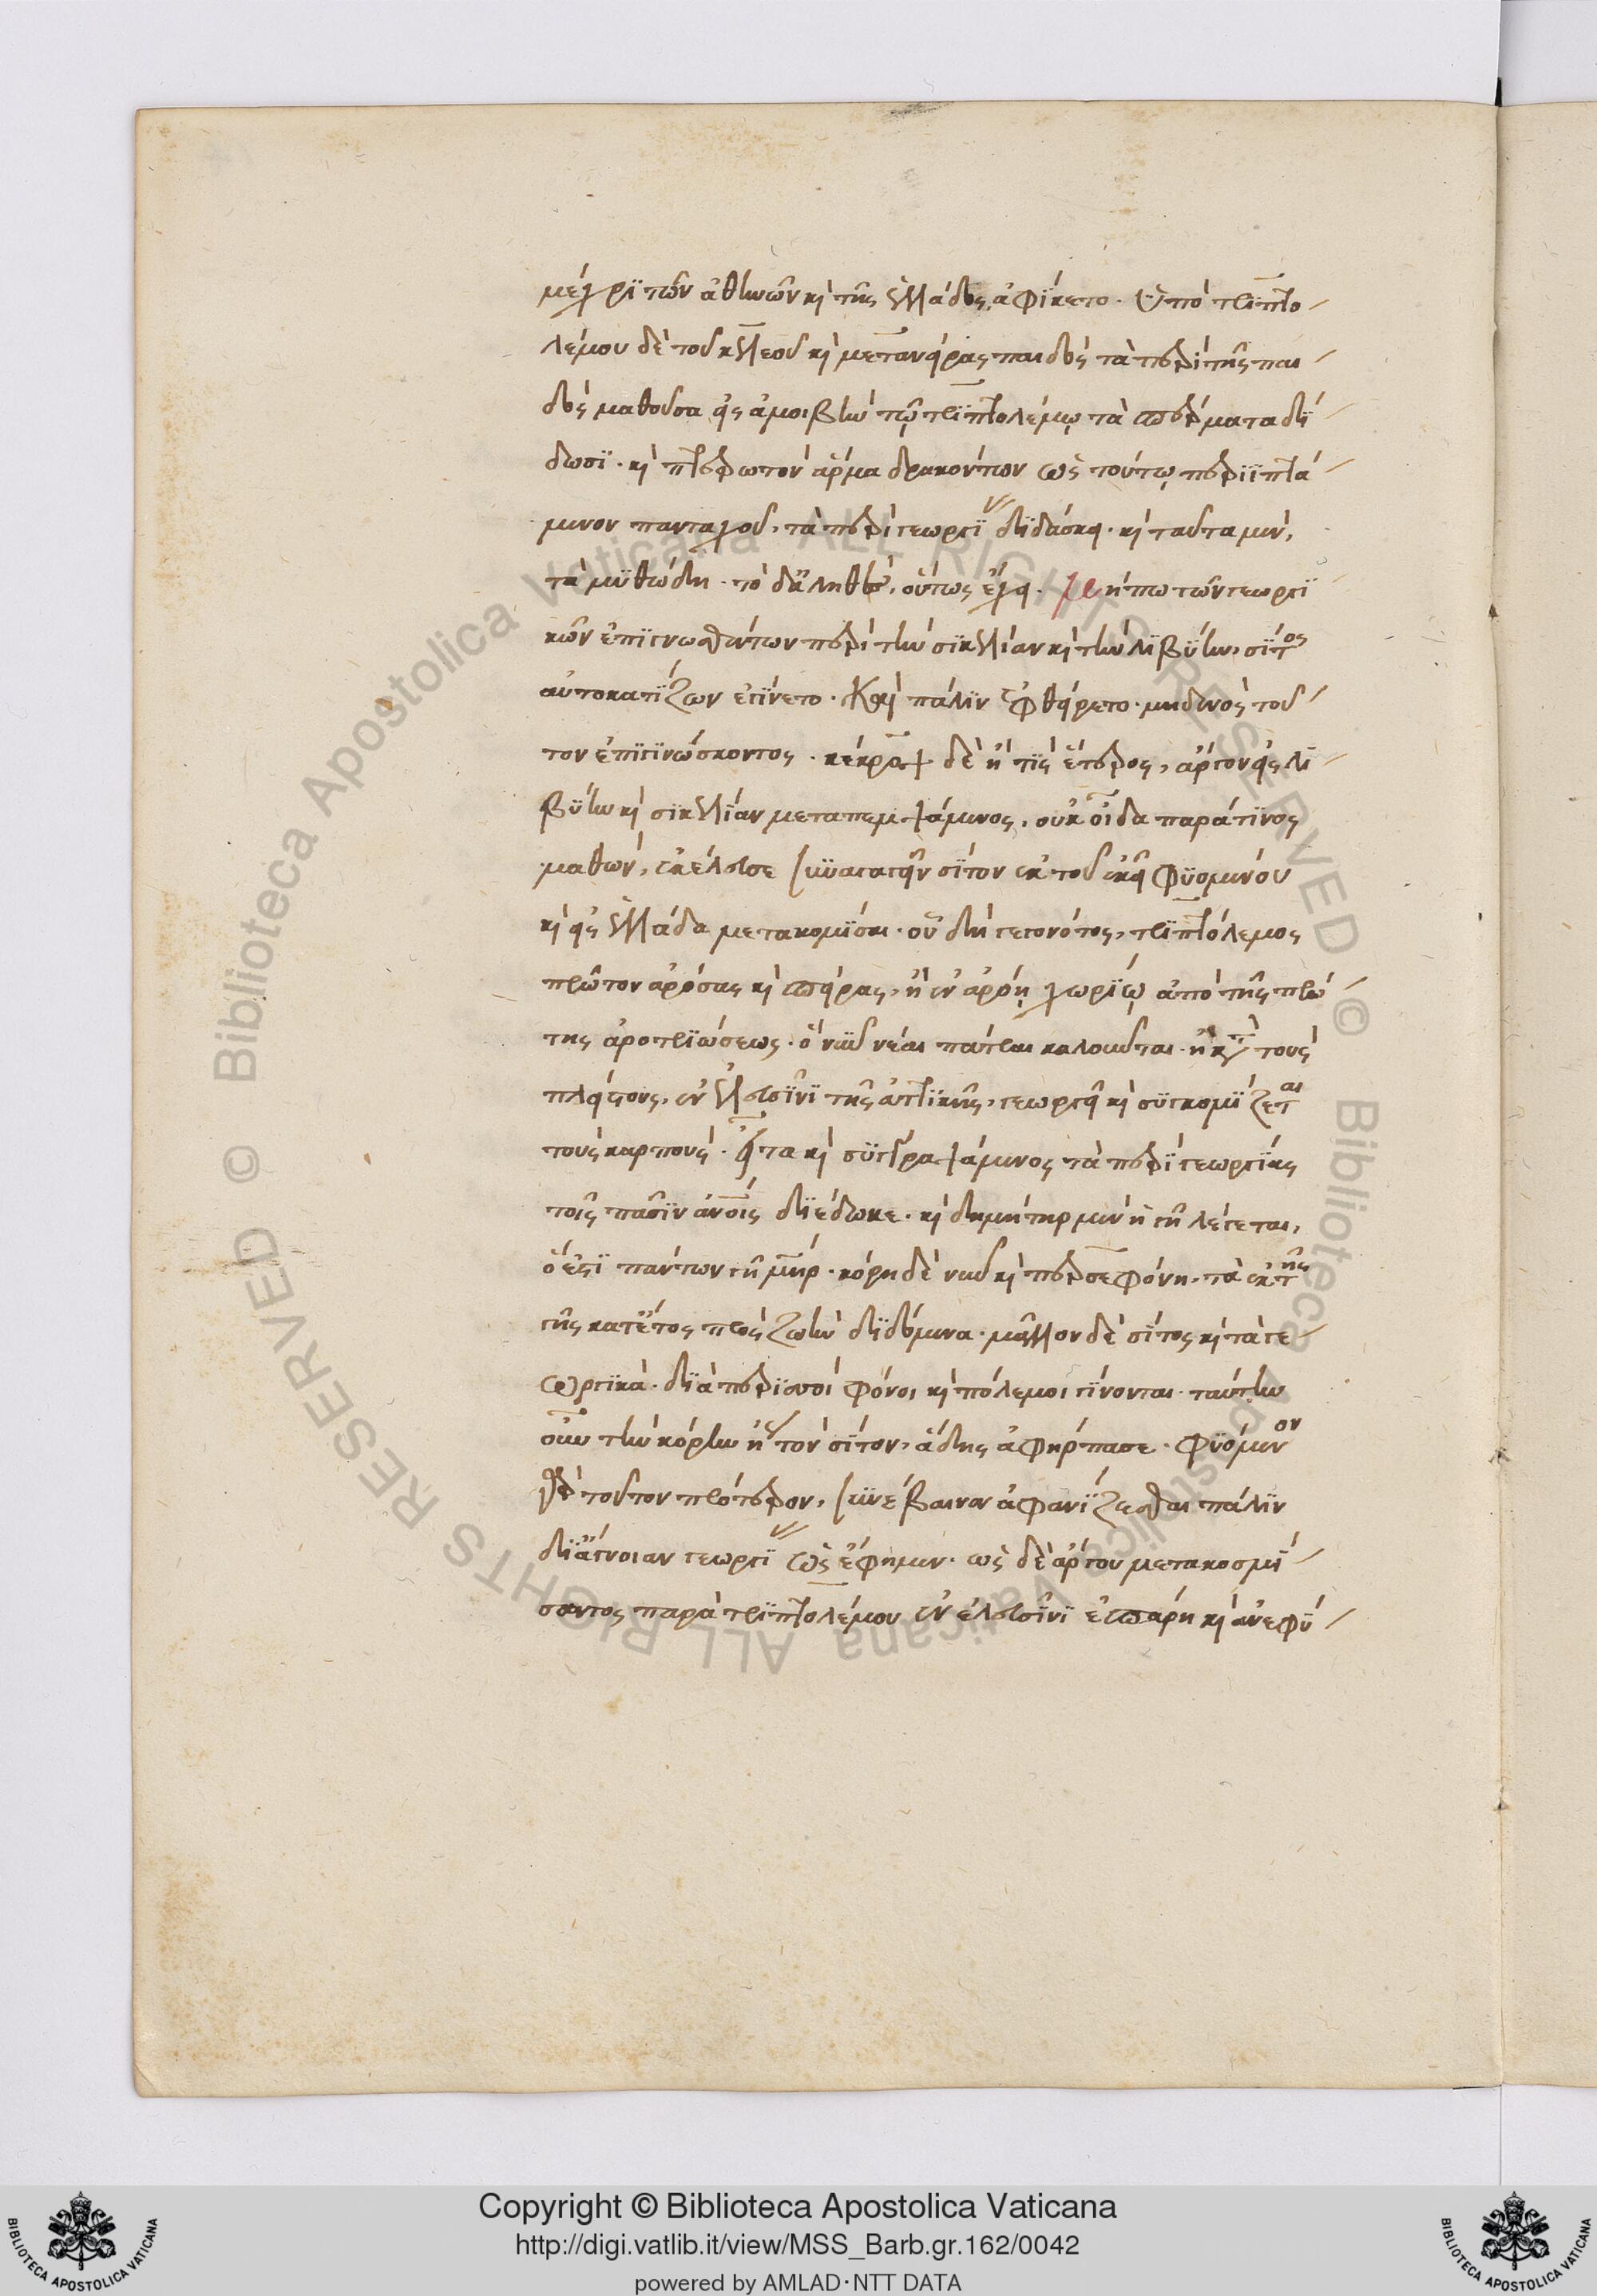 μέχρι τῶν ἀθηνῶν καὶ τῆς ἑλλάδος, ἀφίκετο. ὑπὸ τριπτο
λέμου δὲ τοῦ κελεοῦ καὶ μετανείρας παιδὸς τὰ περὶ τῆς παι
δὸς μαθοῦσα εἰς ἀμοιβὴν τῷ τριπτολέμῳ τὰ σπέρματα δί
δωσι. καὶ πτερωτὸν ἅρμα δρακόντων ὡς τούτῳ περιϊπτά
μενον πανταχοῦ, τὰ περὶ γεωργί διδάσκει. καὶ ταῦτα μὲν,
τὰ μυθώδη. τὸ δ' ἀληθὲς, οὕτως ἔχει. μήπω τῶν γεωργι
κῶν ἐπιγνωσθέντων περὶ τὴν σικελίαν καὶ τὴν λιβύην, σῖτος
αὐτοματίζων ἐγίνετο. Καὶ πάλιν ἐφθείρετο. μηδενὸς τοῦ
τον ἐπιγινώσκοντος. κέκροψ δὲ ἤ τις ἕτερος, ἀργὸν εἰς λι
βύην καὶ σικελίαν μεταπεμψάμενος, οὐκ οἶδα παρά τινος
μαθὼν, ἐκέλευσε συναγαγεῖν σῖτον ἐκ τοῦ ἐκεῖ φυομένου
καὶ εἰς ἑλλάδα μετακομίσαι. οὗ δὴ γεγονότος, τριπτόλεμος
πρῶτον ἀρόσας καὶ σπείρας, ἢ ἐν ἀρόῃ χωρίῳ ἀπὸ τῆς πρώ
της ἀροτριώσεως. ὃ νῦν νέαι πάτραι καλοῦνται. ἢ κατὰ τοὺς
πλείστους, ἐν ἐλευσῖνι τῆς ἀττικῆς, γεωργεῖ καὶ συγκομίζεται
τοὺς καρπούς. εἶτα καὶ συγγραψάμενος τὰ περὶ γεωργίας
τοῖς πᾶσιν ἀνοις διέδωκε. καὶ δημήτηρ μὲν ἡ γῆ λέγεται,
ὅ ἐστι πάντων γῆ μηρ. κόρη δὲ νῦν καὶ περσεφόνη, τὰ ἐκ τῆς
γῆς κατ' ἔτος πρὸς ζωὴν διδόμενα. μᾶλλον δὲ σῖτος καὶ τὰ γε
ωργικά. διὰ περιουσι φόνοι καὶ πόλεμοι γίνονται. ταύτην
οὖν τὴν κόρην ἤτοι τὸν σῖτον, ἅδης ἀφήρπασε. φυόμενον
γὰρ τοῦτον πρότερον, συνέβαινεν ἀφανίζεσθαι πάλιν
δι' ἄγνοιαν γεωργί ὡς ἔφημεν. ὡς δὲ ἀργου μετακοσμί
σαντος παρὰ τριπτολέμου ἐν ἐλευσῖνι ἐσπάρη καὶ ἀνεφύ
Copyright © Biblioteca Apostolica Vaticana
http://digi.vatlib.it/view/MSS_Barb.gr.162/0042
powered by AMLAD·NTT DATA